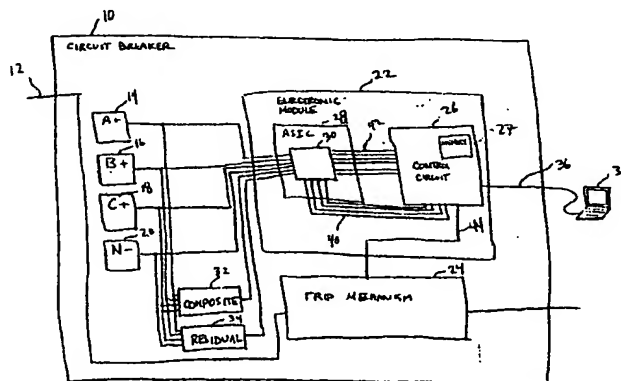 10
CIRCUIT BREAKER
12
14
A+
16
B+
18
C+
20
N-
22
ELECTRONIC
MODULE
28
ASIC
30
42
26
27
CONTROL
CIRCUIT
36
3
40
32
COMPOSITE
34
RESIDUAL
24